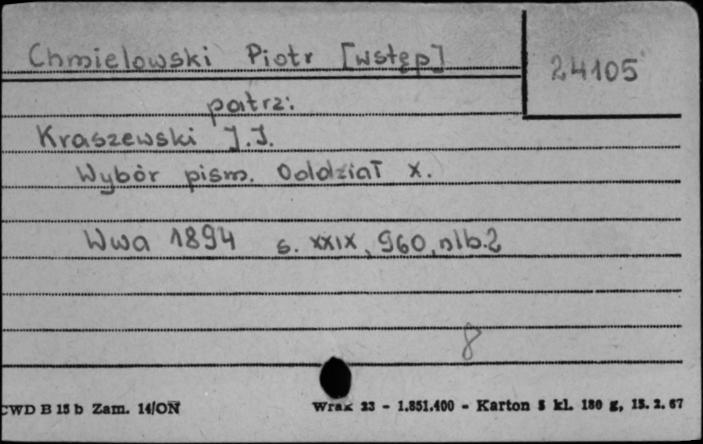 Chmielowski Piotr [wstęp]
24105
patrz:
Kraszewski J.I.
Wybór pism. Oddział X.
Wwa 1894 s. XXIX, 960, nlb. 2
8
CWD B 15 b Zam. 14/ON
Wrak 23 - 1.851.400 - Karton 5 kl. 180 g, 15. 2. 67